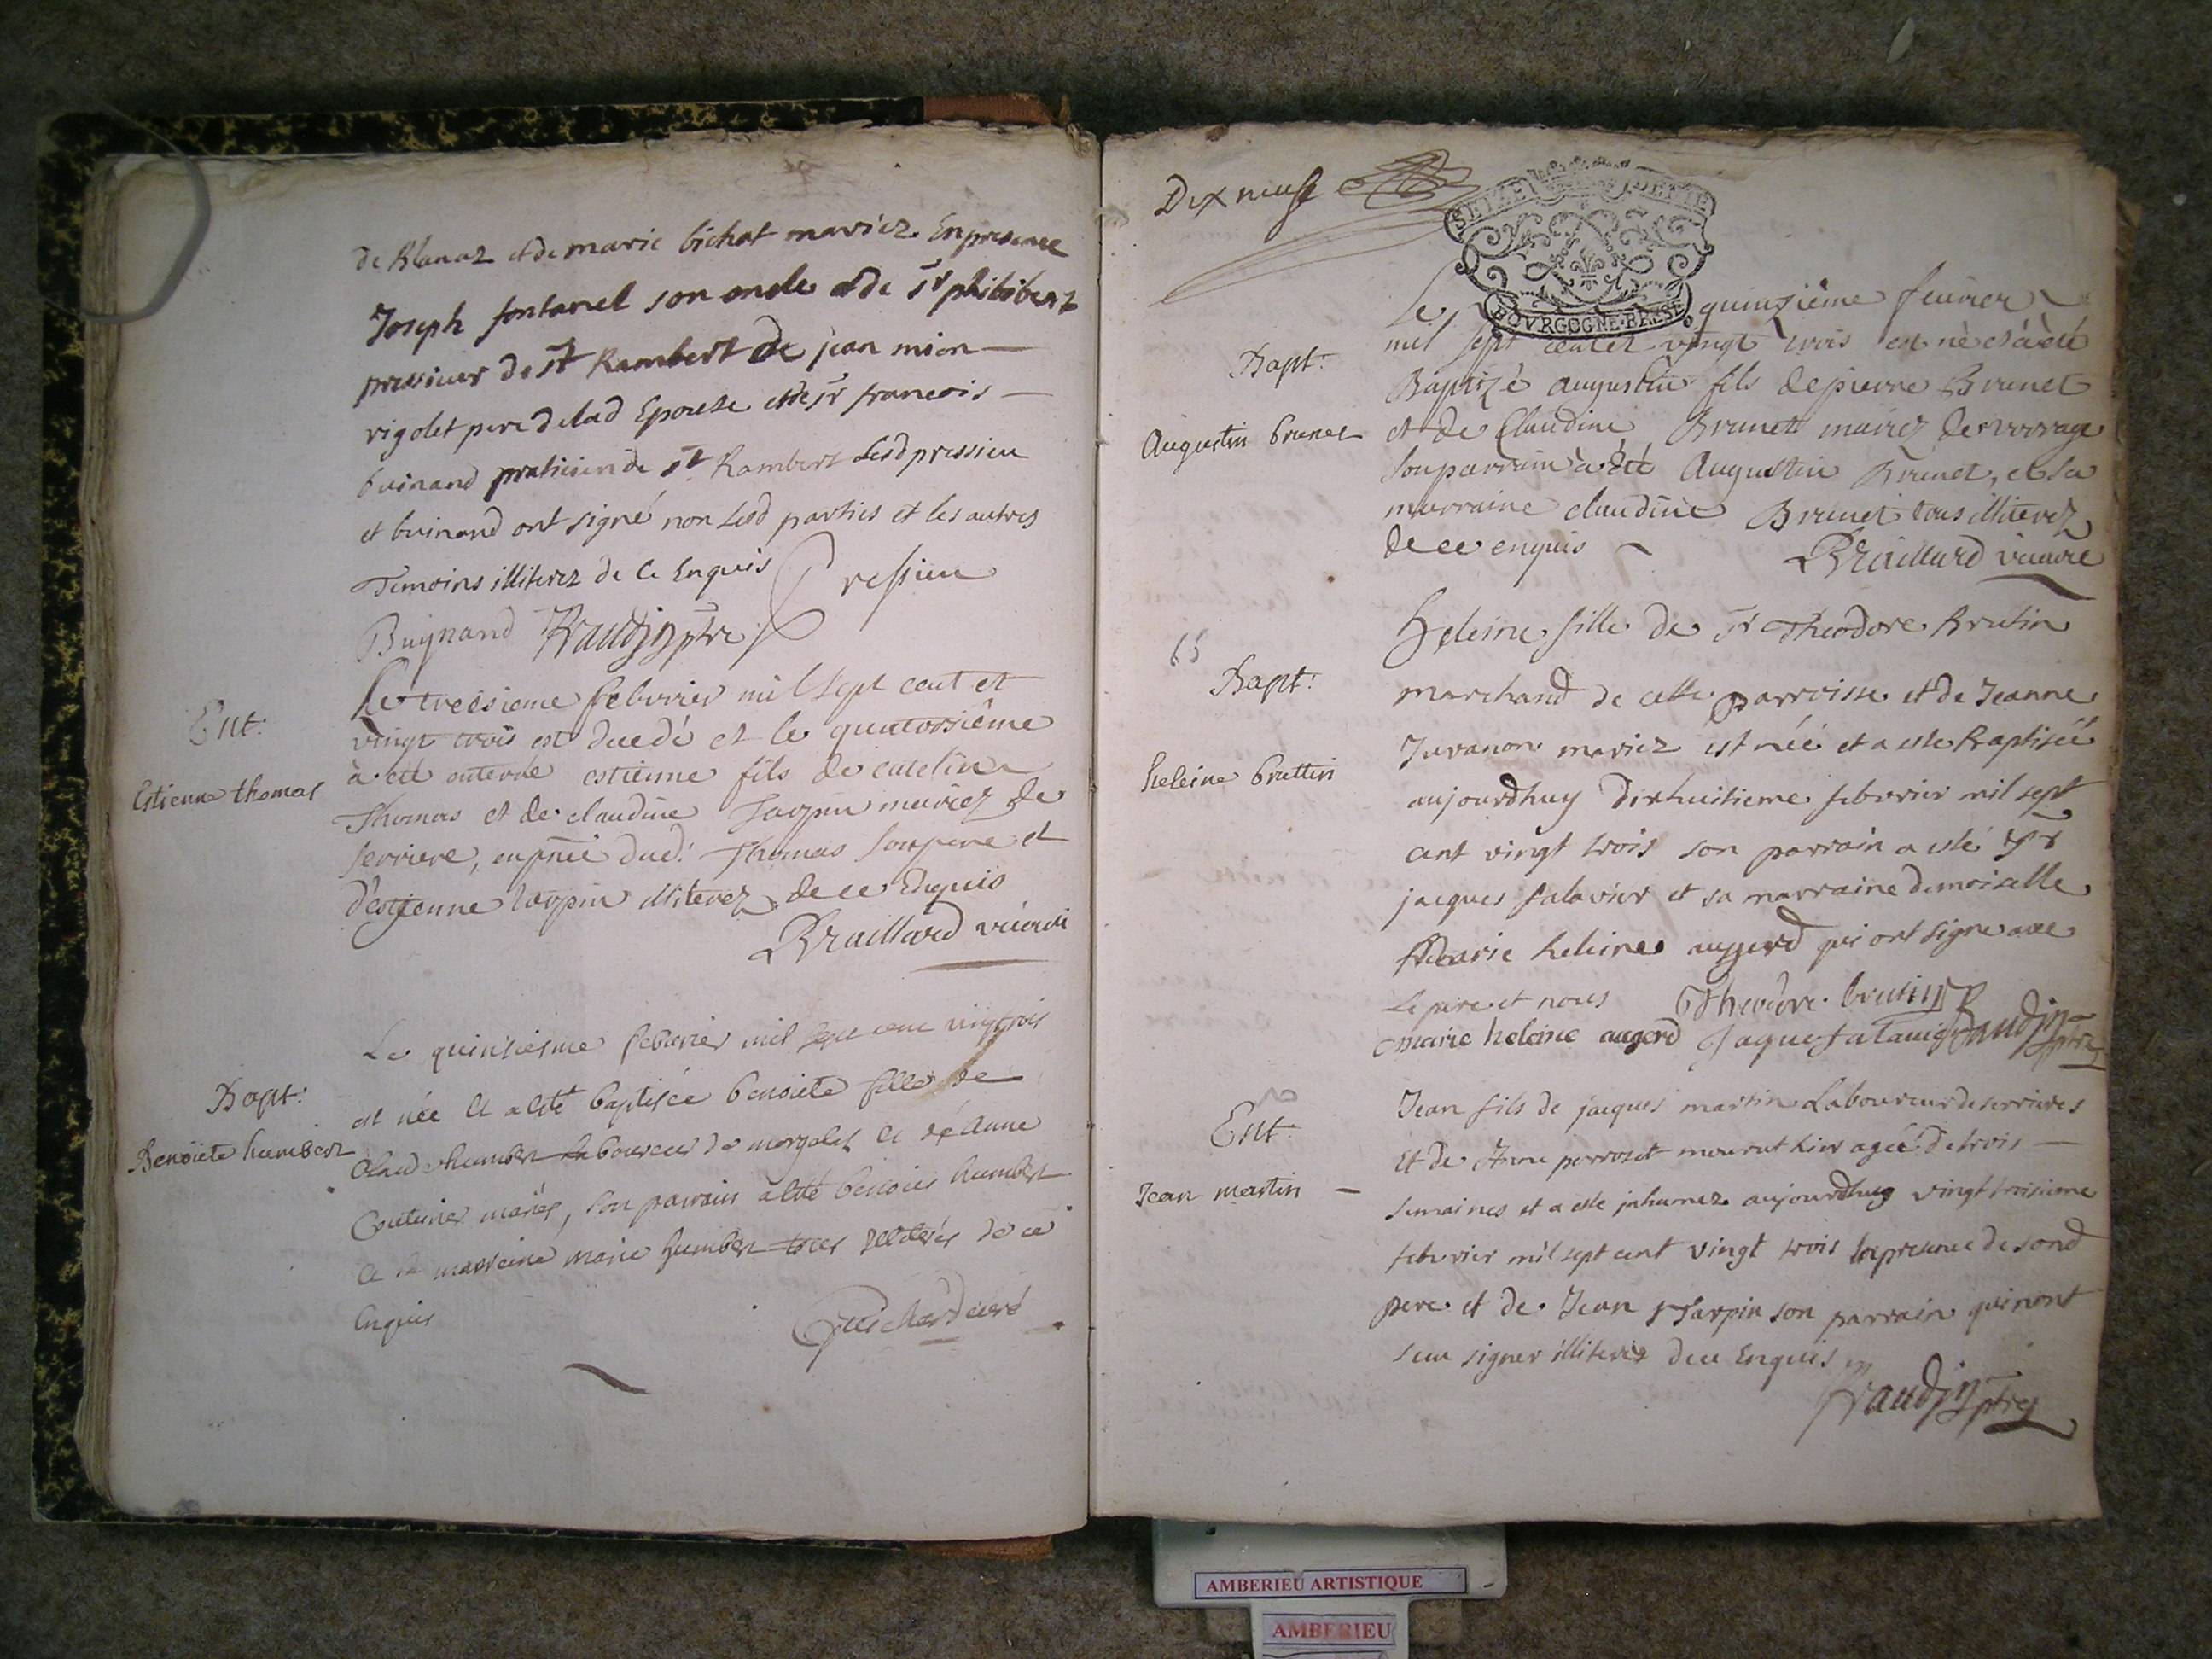 de Blanaz et de marie bichat mariez. En presence
Joseph fontanel son oncle et de sr philibert
pressieur de st Rambert de jean mion
rigolet pere de lad Epouse et de sr francois
buinand praticien de st Rambert Lesd pressieu
et buinand ont signé non Lesd parties et les autres
Temoins illiterez de Ce Enquis
Pressieu
Buynand ptre
Ent:
Estienne thomas
Le treisieme febvrier mil sept cent et
vingt trois est decedé et le quatorsiême
à eté enterré estienne fils de
Thomas et de claudine Tarpin mariez de
serriere, en pnce dud: Thomas son pere et
d'estienne tarpin illiterez de ce Enquis
Braillard vicaire
Bapt:
Benoiete humbert
Le quinsiesme febvrier mil sept cent vingtrois
est née et a esté baptisée benoiete fille de
Claude humbert laboureur de morgelas et de Anne
mariés, son parrain a esté benoict humbert
et sa marreine marie humbert tous illiterés de ce
Enquis
Guichard curé
Dix neuf
SEIZE DENIE
BOVRGOGNE BRESSE
Bapt:
Augustin brunet
Le quinsiême feuvrier
mil sept cent et vingt trois est né et à eté
Baptizé augustin fils de pierre Brunet
et de Claudine Brunet mariez de vorage
son parrain à eté Augustin Brunet, et sa
marraine claudine Brunet tous illiterez
de ce enquis
Braillard vicaire
65
Bapt:
heleine bruttin
Heleine fille de sr Theodore Brutin
marchand de cette parroisse et de Jeanne
Juvanon mariez est née et a este Baptisée
aujourdhuy dixhuitieme febvrier mil sept
cent vingt trois son parrain a esté sr
jacques salavier et sa marraine demoiselle
Marie heleine augerd qui ont signe avec
Le pere et nous
Theodore brutin
marie heleine augerd
ptre
Ent:
Jean martin
Jean fils de jacques martin Laboureur de serrieres
Et de Anne perroset mourut hier agée de trois
semaines et a este inhumez aujourdhuy vingt troisieme
febvrier mil sept cent vingt trois En presence de sond
pere et de Jean Tarpin son parrain qui nont
sceu signer illiterez de ce Enquis
ptre
AMBERIEU ARTISTIQUE
AMBERIEU